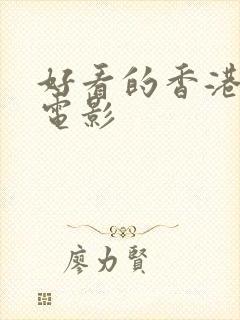 好看的香港
電影
廖力賢